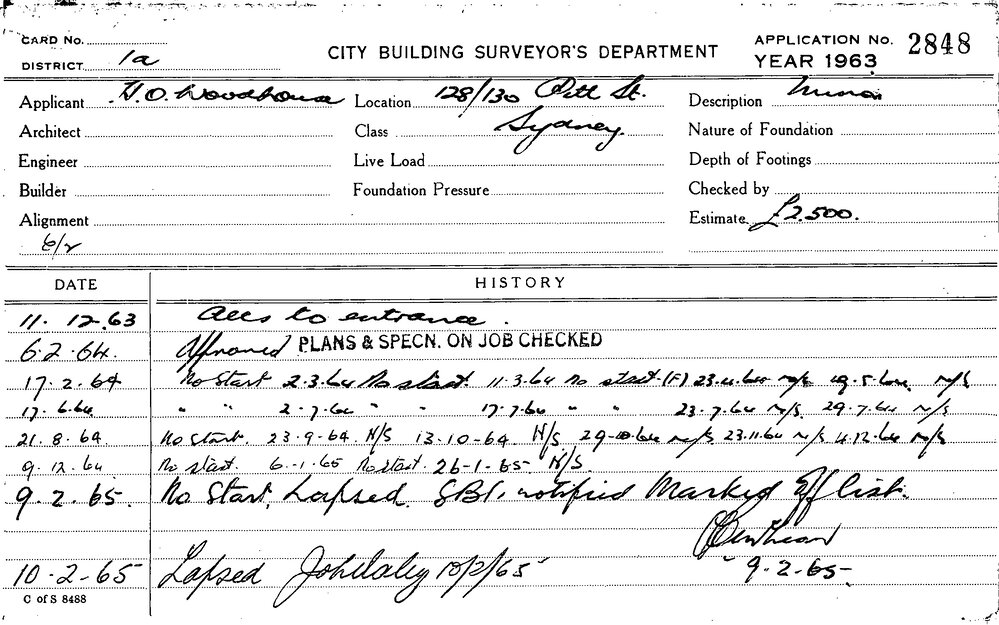 CARD No.
DISTRICT 1a
CITY BUILDING SURVEYOR'S DEPARTMENT
APPLICATION No. 2848
YEAR 1963
Applicant H.O. Woodhouse Location 128/130 Pitt St. Description Minor
Architect Class Sydney. Nature of Foundation
Engineer Live Load Depth of Footings
Builder Foundation Pressure Checked by
Alignment Estimate £2,500.
DATE HISTORY
11. 12.63 Alts to entrance.
6.2.64. Approved PLANS & SPECN. ON JOB CHECKED
17.2.64 No Start 2.3.64 No start. 11.3.64 no start (F) 23.4.64 n/s 19.5.64 n/s
17.6.64 " " 2.7.64 " " 17.7.64 " " 23.7.64 n/s. 29.7.64 n/s
21.8.64 No Start. 23.9.64. N/S 13.10.64. N/S. 29.10.64 n/s 23.11.64 n/s 4.12.64 n/s
9.12.64 No start. 6.1.65 No start. 26.1.65 N/S.
9.2.65. No Start, Lapsed. SBI. notified Marked Off list.
9.2.65.
10.2.65 Lapsed 10/2/65
C of S 8488